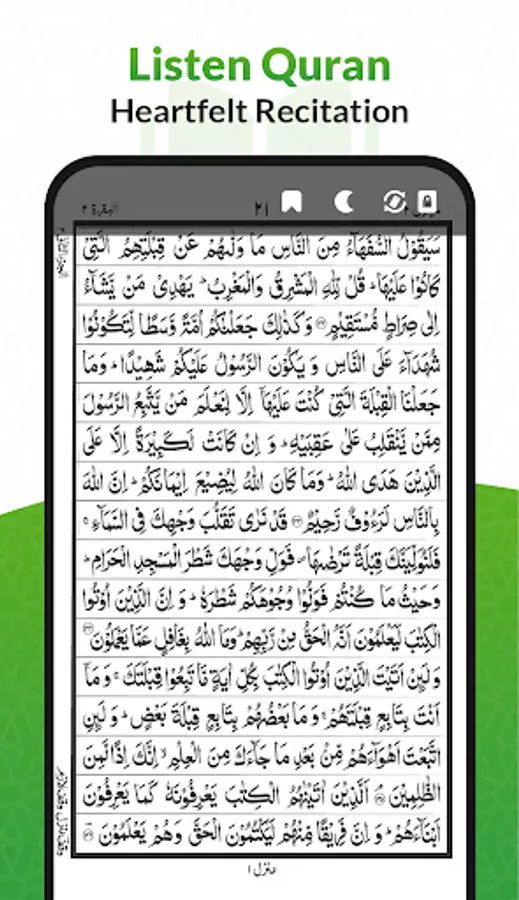 Listen Quran
Heartfelt Recitation
البقرة ٢
٢١
سَيَقُوْلُ السُّفَهَآءُ مِنَ النَّاسِ مَا وَلّٰىهُمْ عَنْ قِبْلَتِهِمُ الَّتِیْ
كَانُوْا عَلَیْهَا ؕ قُلْ لِّلّٰهِ الْمَشْرِقُ وَالْمَغْرِبُ ؕ یَهْدِیْ مَنْ یَّشَآءُ
اِلٰی صِرَاطٍ مُّسْتَقِیْمٍ ۝ وَكَذٰلِكَ جَعَلْنٰكُمْ اُمَّةً وَّسَطًا لِّتَكُوْنُوْا
شُهَدَآءَ عَلَی النَّاسِ وَ یَكُوْنَ الرَّسُوْلُ عَلَیْكُمْ شَهِیْدًا ؕ وَمَا
جَعَلْنَا الْقِبْلَةَ الَّتِیْ كُنْتَ عَلَیْهَاۤ اِلَّا لِنَعْلَمَ مَنْ یَّتَّبِعُ الرَّسُوْلَ
مِمَّنْ یَّنْقَلِبُ عَلٰی عَقِبَیْهِ ؕ وَ اِنْ كَانَتْ لَكَبِیْرَةً اِلَّا عَلَی
الَّذِیْنَ هَدَی اللّٰهُ ؕ وَمَا كَانَ اللّٰهُ لِیُضِیْعَ اِیْمَانَكُمْ ؕ اِنَّ اللّٰهَ
بِالنَّاسِ لَرَءُوْفٌ رَّحِیْمٌ ۝ قَدْ نَرٰی تَقَلُّبَ وَجْهِكَ فِی السَّمَآءِ ۚ
فَلَنُوَلِّیَنَّكَ قِبْلَةً تَرْضٰىهَا ۪ فَوَلِّ وَجْهَكَ شَطْرَ الْمَسْجِدِ الْحَرَامِ ؕ
وَحَیْثُ مَا كُنْتُمْ فَوَلُّوْا وُجُوْهَكُمْ شَطْرَهٗ ؕ وَ اِنَّ الَّذِیْنَ اُوْتُوا
الْكِتٰبَ لَیَعْلَمُوْنَ اَنَّهُ الْحَقُّ مِنْ رَّبِّهِمْ ؕ وَمَا اللّٰهُ بِغَافِلٍ عَمَّا یَعْمَلُوْنَ ۝
وَلَئِنْ اَتَیْتَ الَّذِیْنَ اُوْتُوا الْكِتٰبَ بِكُلِّ اٰیَةٍ مَّا تَبِعُوْا قِبْلَتَكَ ۚ وَ مَاۤ
اَنْتَ بِتَابِعٍ قِبْلَتَهُمْ ۚ وَ مَا بَعْضُهُمْ بِتَابِعٍ قِبْلَةَ بَعْضٍ ؕ وَ لَئِنِ
اتَّبَعْتَ اَهْوَآءَهُمْ مِّنْۢ بَعْدِ مَا جَآءَكَ مِنَ الْعِلْمِ ۙ اِنَّكَ اِذًا لَّمِنَ
الظّٰلِمِیْنَ ۝ اَلَّذِیْنَ اٰتَیْنٰهُمُ الْكِتٰبَ یَعْرِفُوْنَهٗ كَمَا یَعْرِفُوْنَ
اَبْنَآءَهُمْ ؕ وَ اِنَّ فَرِیْقًا مِّنْهُمْ لَیَكْتُمُوْنَ الْحَقَّ وَهُمْ یَعْلَمُوْنَ ۝
منزل ١